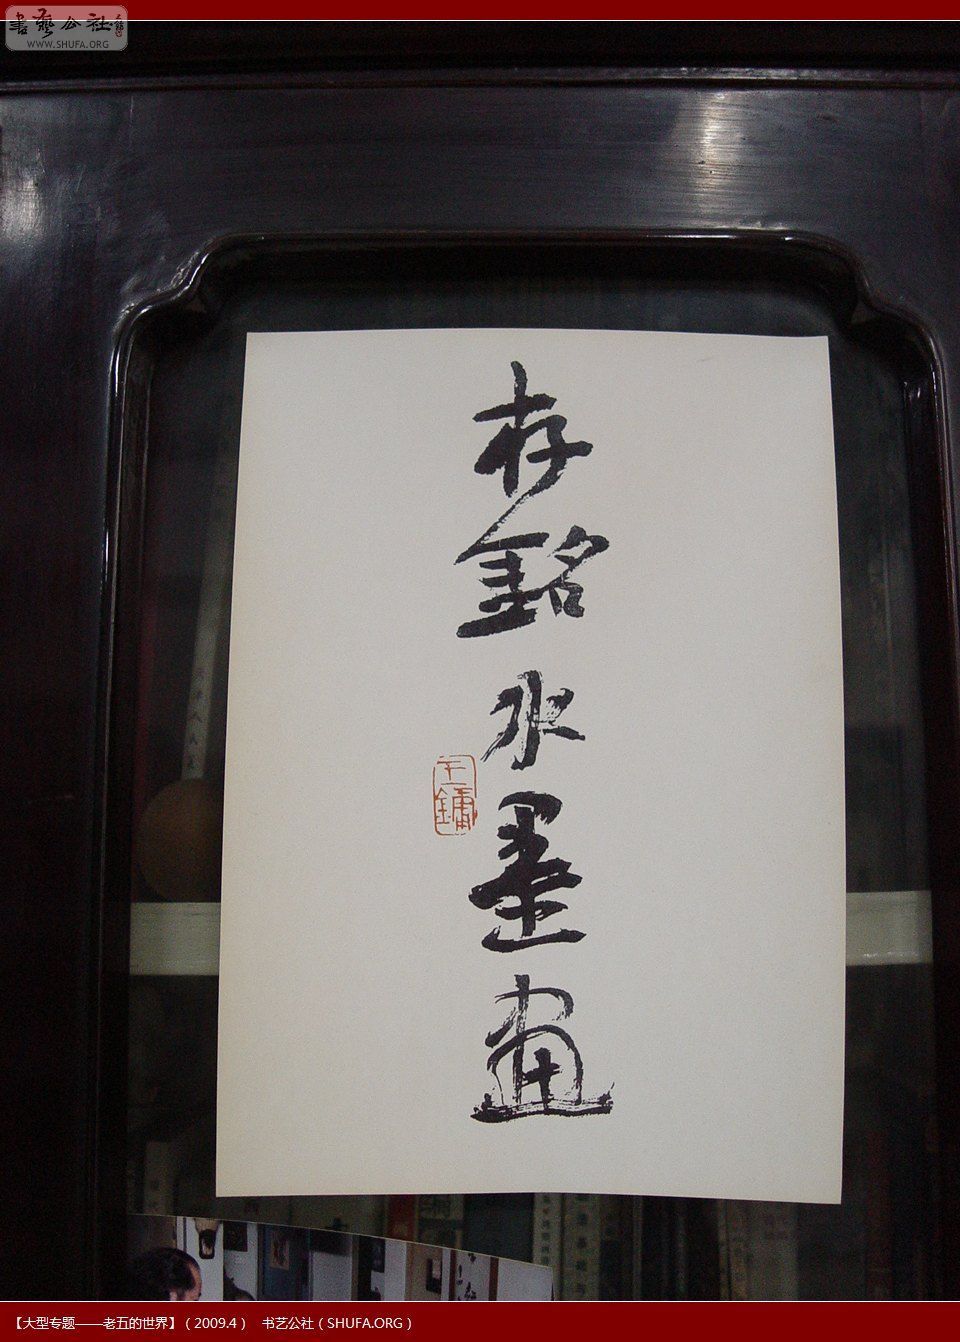 書藝公社
WWW.SHUFA.ORG
存銘水墨畫
王鏞
【大型专题——老五的世界】（2009.4） 书艺公社（SHUFA.ORG）